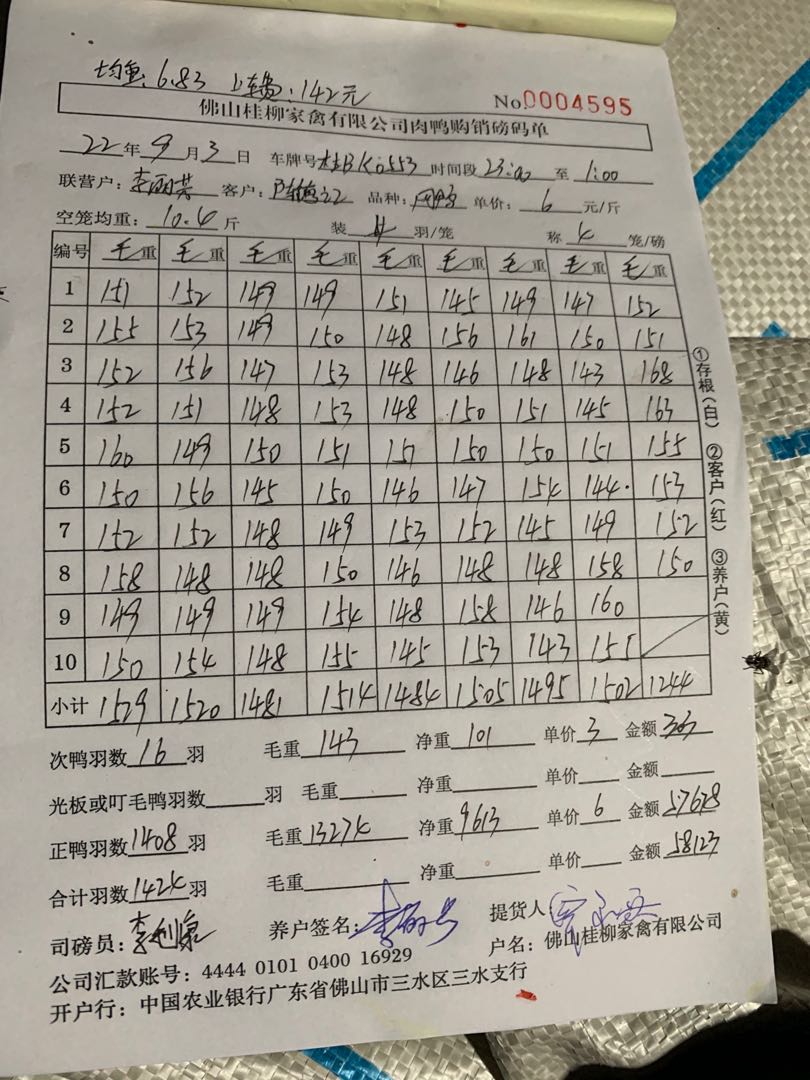 均重:6.83 上车费:142元
No.0004595
佛山桂柳家禽有限公司肉鸭购销磅码单
22年9月3日 车牌号桂BK0553 时间段23:00至1:00
联营户: 客户: 品种: 单价:6元/斤
空笼均重:10.4斤 装4羽/笼 称4笼/磅
编号 毛重 毛重 毛重 毛重 毛重 毛重 毛重 毛重 毛重
1 151 152 149 149 151 145 149 147 152
2 155 153 149 150 148 156 161 150 151
3 152 156 147 153 148 146 148 143 168
4 152 151 148 153 148 150 151 145 163
5 160 149 150 151 151 150 150 151 155
6 150 156 145 150 146 147 154 144 153
7 152 152 148 149 153 152 145 149 152
8 158 148 148 150 146 148 148 158 150
9 149 149 149 154 148 158 146 160
10 150 154 148 155 145 153 143 155
小计 1529 1520 1481 1514 1484 1505 1495 1502 1244
①存根(白) ②客户(红) ③养户(黄)
次鸭羽数16羽 毛重143 净重101 单价3 金额303
光板或叮毛鸭羽数 羽 毛重 净重 单价 金额
正鸭羽数1408羽 毛重13274 净重9613 单价6 金额57678
合计羽数1424羽 毛重 净重 单价 金额58123
司磅员: 养户签名: 提货人
公司汇款账号:4444 0101 0400 16929 户名:佛山桂柳家禽有限公司
开户行:中国农业银行广东省佛山市三水区三水支行